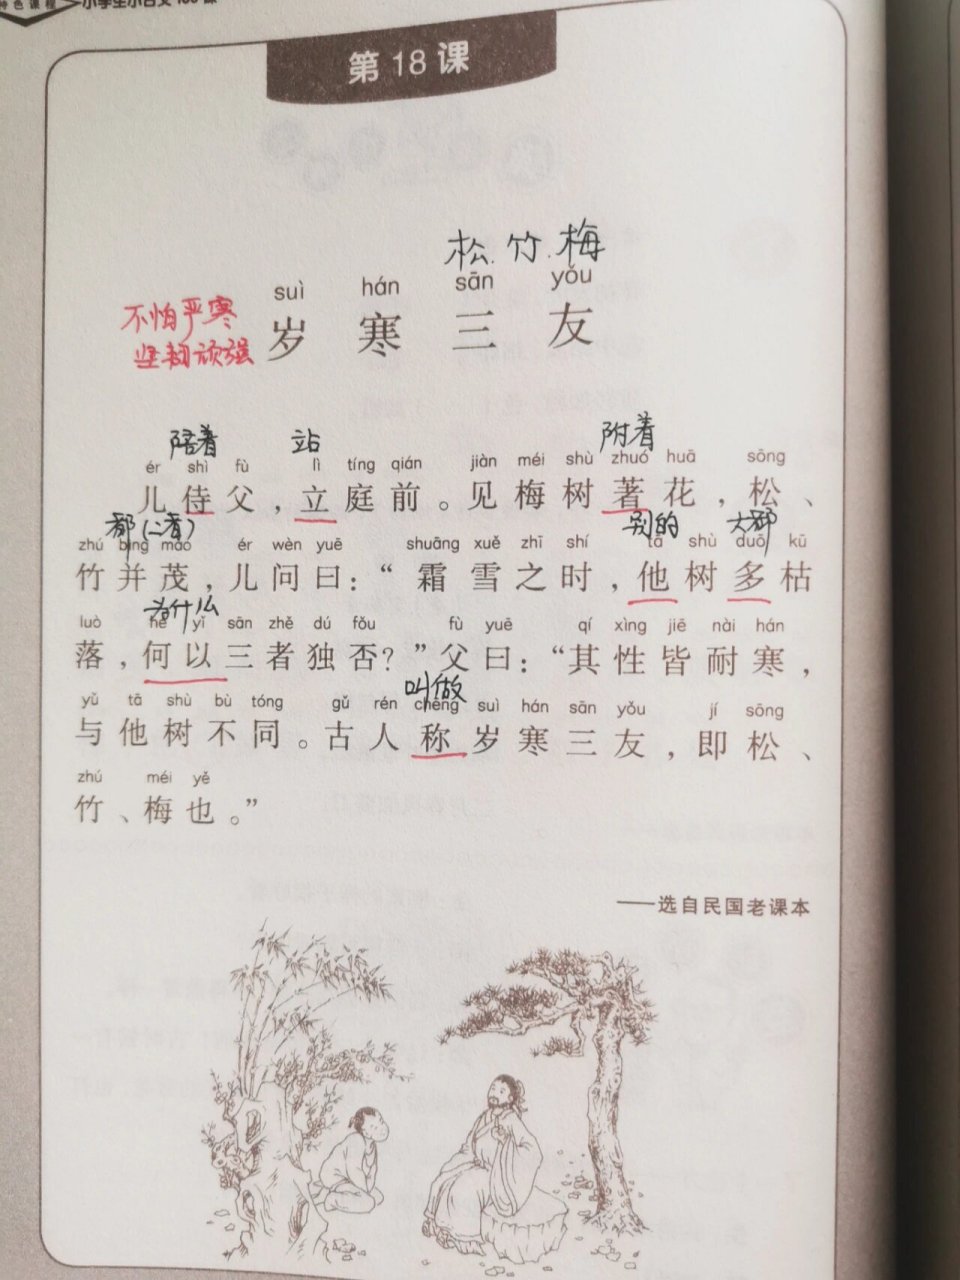 特色课程
小学生小古文100课
第18课
松.竹.梅
suì hán sān yǒu
不怕严寒
岁寒三友
坚韧顽强
陪着 站 附着
ér shì fù lì tíng qián jiàn méi shù zhuó huā sōng
儿侍父，立庭前。见梅树著花，松、
都(二者) 别的 大都
zhú bìng mào ér wèn yuē shuāng xuě zhī shí tā shù duō kū
竹并茂，儿问曰：“霜雪之时，他树多枯
为什么
luò hé yǐ sān zhě dú fǒu fù yuē qí xìng jiē nài hán
落，何以三者独否？”父曰：“其性皆耐寒，
叫做
yǔ tā shù bù tóng gǔ rén chēng suì hán sān yǒu jí sōng
与他树不同。古人称岁寒三友，即松、
zhú méi yě
竹、梅也。”
——选自民国老课本